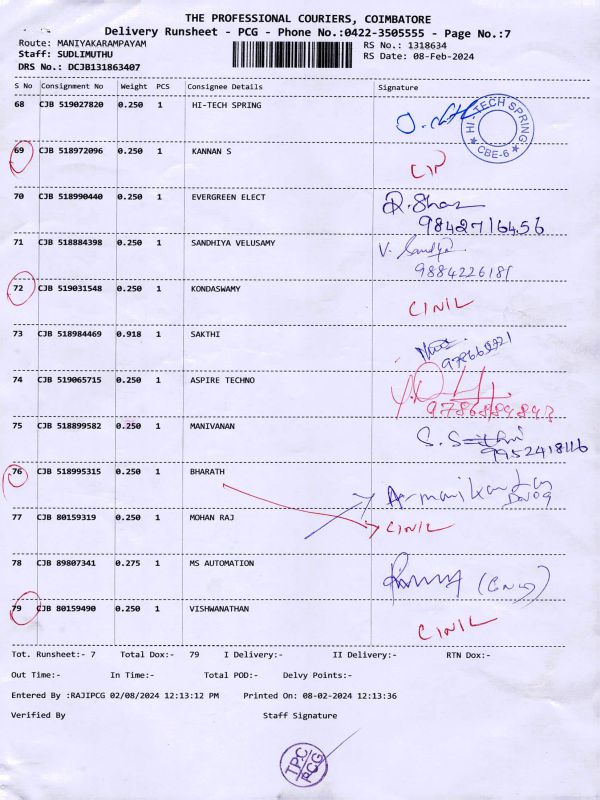 THE PROFESSIONAL COURIERS, COIMBATORE
Delivery Runsheet - PCG - Phone No.:0422-3505555 - Page No.:7
Route: MANIYAKARAMPAYAM
Staff: SUDLIMUTHU
DRS No.: DCJB131863407
RS No.: 1318634
RS Date: 08-Feb-2024
S No Consignment No Weight PCS Consignee Details Signature
68 CJB 519027820 0.250 1 HI-TECH SPRING
HI-TECH SPRING CBE-6
69 CJB 518972096 0.250 1 KANNAN S
70 CJB 518990440 0.250 1 EVERGREEN ELECT
9842716456
71 CJB 518884398 0.250 1 SANDHIYA VELUSAMY V. Sandya
9884226181
72 CJB 519031548 0.250 1 KONDASWAMY CINIL
73 CJB 518984469 0.918 1 SAKTHI
74 CJB 519065715 0.250 1 ASPIRE TECHNO
75 CJB 518899582 0.250 1 MANIVANAN
9952418116
76 CJB 518995315 0.250 1 BHARATH
77 CJB 80159319 0.250 1 MOHAN RAJ CINIL
78 CJB 89807341 0.275 1 MS AUTOMATION
79 CJB 80159490 0.250 1 VISHWANATHAN CINIL
Tot. Runsheet:- 7 Total Dox:- 79 I Delivery:- II Delivery:- RTN Dox:-
Out Time:- In Time:- Total POD:- Delvy Points:-
Entered By :RAJIPCG 02/08/2024 12:13:12 PM Printed On: 08-02-2024 12:13:36
Verified By Staff Signature
TPC
PCG